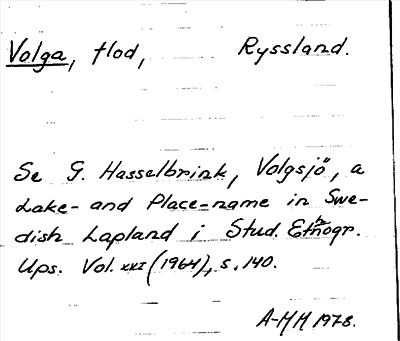 Volga, flod, Ryssland.
Se G. Hasselbrink, Volgsjö, a
Lake- and Place-name in Swe-
dish Lapland i Stud. Ethnogr.
Ups. Vol. XXI (1964), s. 140.
A-MM 1978.